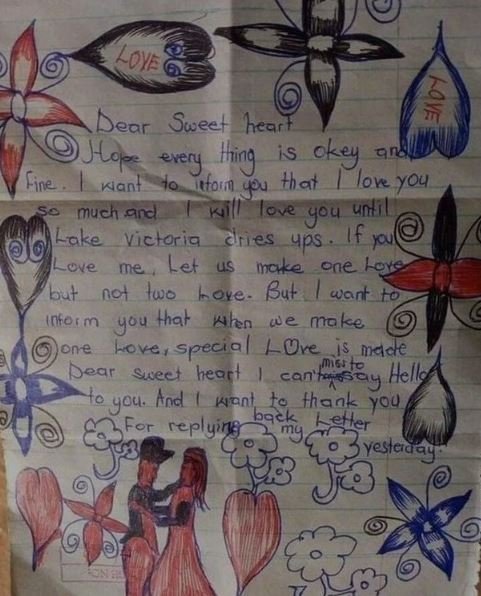 LOVE
LOVE
Dear Sweet heart
Hope every thing is okey and
Fine. I want to inform you that I love you
so much and I will love you until
Lake Victoria dries ups. If you
Love me, Let us make one Love
but not two Love. But I want to
inform you that when we make
one Love, special LOve is made
Dear sweet heart I can't miss to say Hello
to you. And I want to thank you
For replying back my Letter
yesterday.